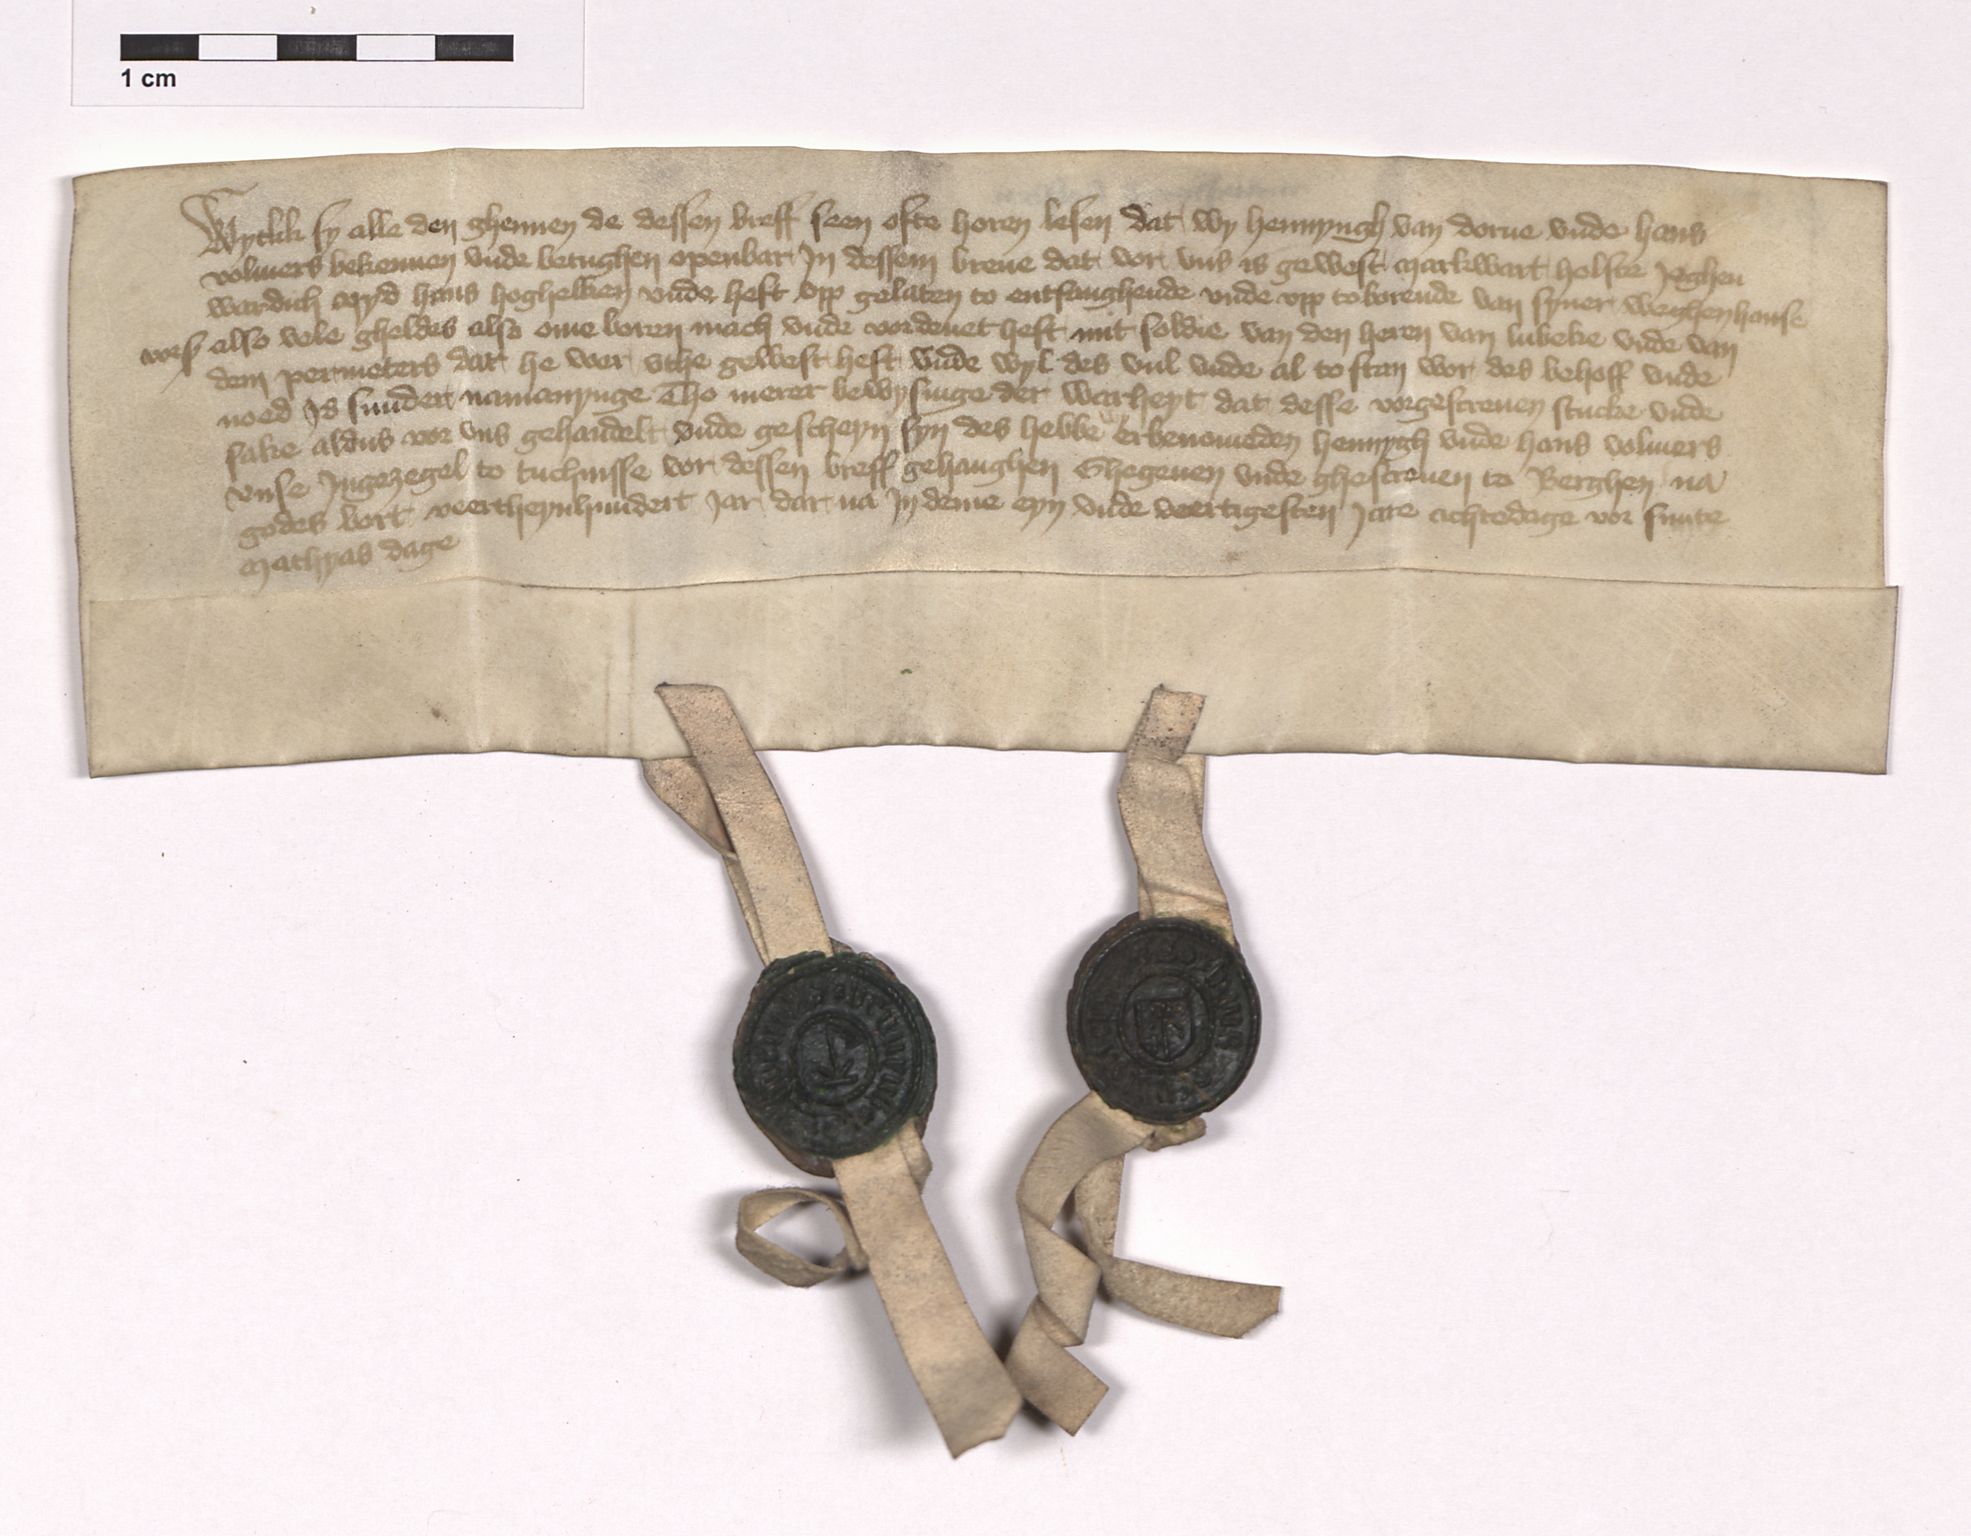 1 cm
Wytlik sy alle den ghennen de dessen breff seen ofte horen lesen dat wy hennyngh van dorne vnde hans
volmers bekennen vnde betughen openbar Jn dessem breue dat vor vns is gewest Markwart holste Jeghen
wardich Myd hans hoghelken vnde heft vpp gelaten to entfanghende vnde vpp toborende van syner weghen hanse
vors also vele gheldes also eme boren mach vnde vordenet heft mit soldie van den heren van lubeke vnde van
dem permeters dat he wer vthe gewest heft vnde wyl des vul vnde al to stan wor des behoff vnde
noed Js sunder namanynge Tho merer bewysinge der warheyt dat desse vorgescreuen stucke vnde
sake aldus vor vns gehandelt vnde gescheyn syn des hebbe wy erbenomeden hennygh vnde hans volmers
vnse Jngezegel to tuchnisse vor dessen breff gehanghen Ghegeuen vnde ghescreuen to Berghen na
godes bort veertheynhundert Jar dar na Jn deme eyn vnde veertigesten Jare achtedage vor sunte
Mathyas dage